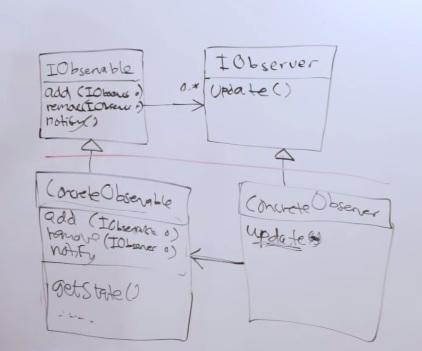 IObservable
add (IObserver o)
remove(IObserver o)
notify()
0..*
IObserver
update()
ConcreteObservable
add (IObserver o)
remove (IObserver o)
notify
getState()
....
ConcreteObserver
update()